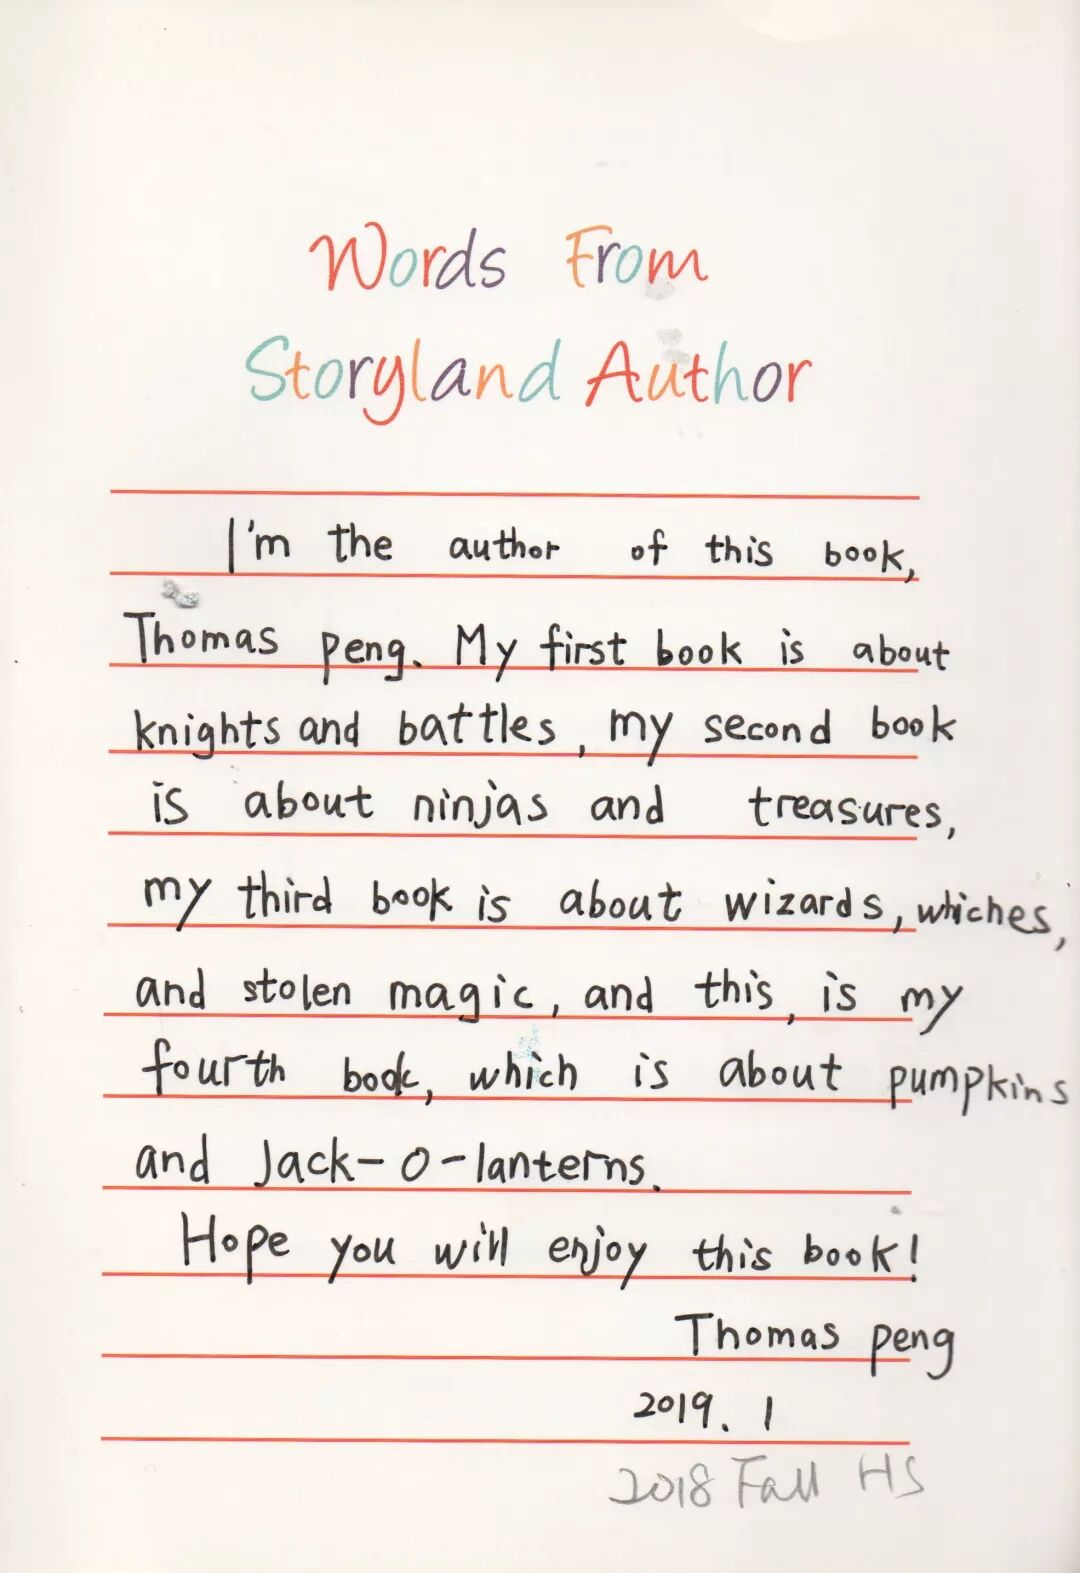 Words From
Storyland Author
I'm the author of this book,
Thomas peng. My first book is about
knights and battles, my second book
is about ninjas and treasures,
my third book is about wizards, whiches,
and stolen magic, and this, is my
fourth book, which is about pumpkins
and Jack-o-lanterns.
Hope you will enjoy this book!
Thomas peng
2019. 1
2018 Fall HS